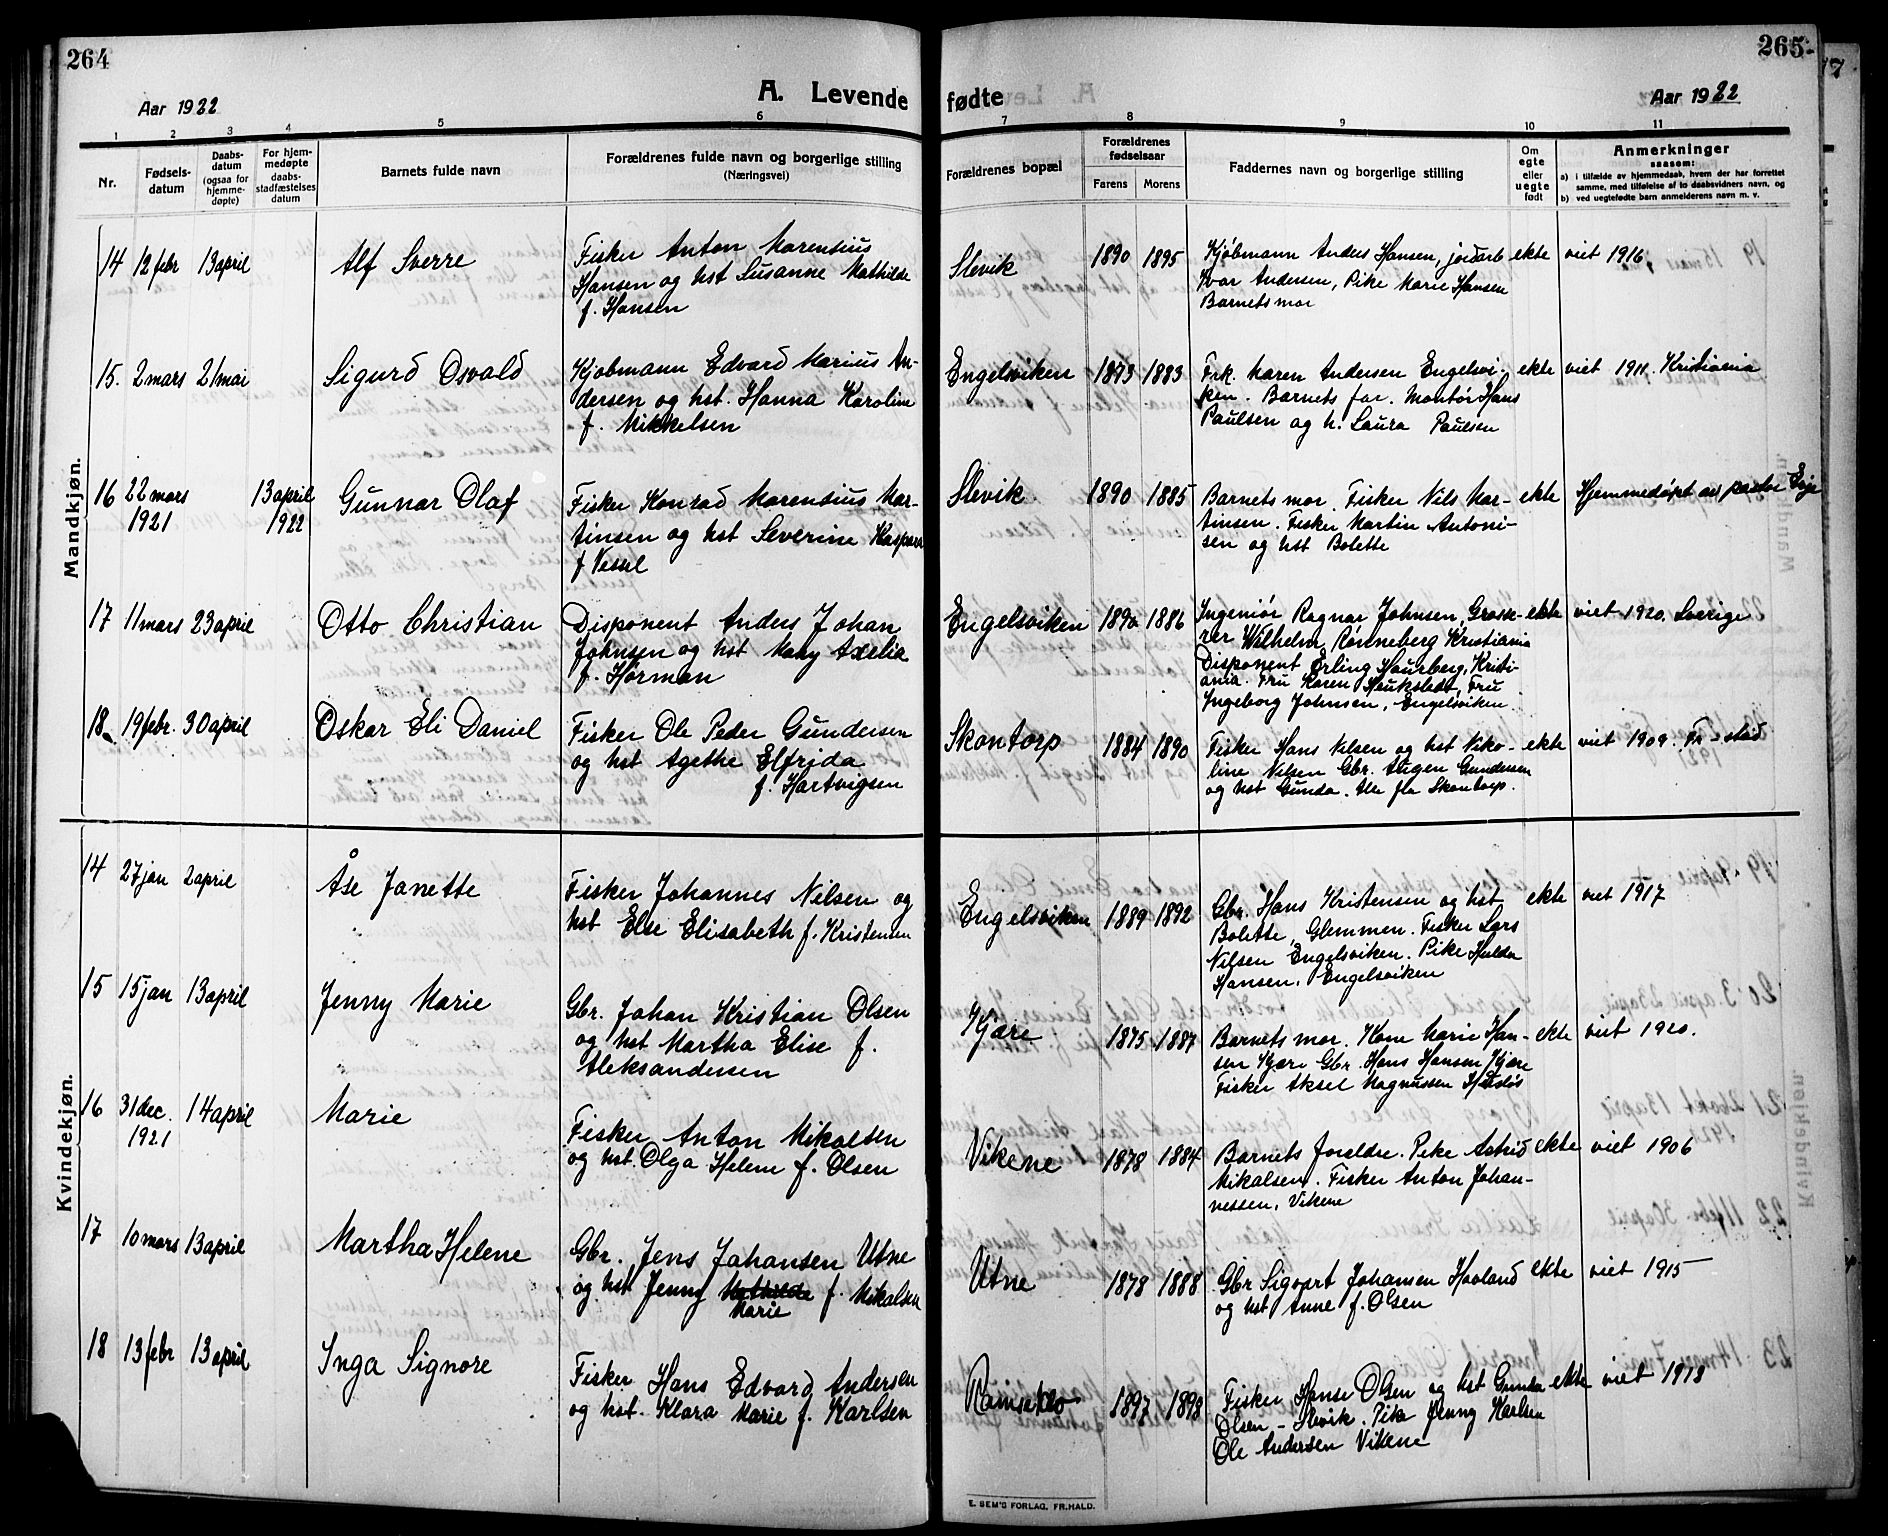 264
265
Aar 1922
A. Levende
fødte
Aar 1922
1 2 3 4 5 6 7 8 9 10 11
Nr.
Fødsels-
datum
Daabs-
datum
(ogsaa for
hjemme-
døpte)
For hjem-
medøpte
daabs-
stadfæstelses
datum
Barnets fulde navn
Forældrenes fulde navn og borgerlige stilling
(Næringsvei)
Forældrenes bopæl
Forældrenes
fødselsaar
Farens Morens
Faddernes navn og borgerlige stilling
Om
egte
eller
uegte
født
Anmerkninger
saasom:
a) i tilfælde av hjemmedaab, hvem der har forrettet
samme, med tilføielse af to daabsvidners navn, og
b) ved uegtefødte barn anmelderens navn m. v.
Mandkjøn.
14 12 febr 13 april
Alf Sverre
Fisker Anton Marensius
Hansen og hst Susanne Mathilde
f. Hansen
Slevik
1890 1895
Kjøbmann Anders Hansen, jordarb
Ivar Andersen, Pike Marie Hansen
Barnets mor
ekte
viet 1916
15. 2 mars 21 mai
Sigurd Osvald
Kjøbmann Edvard Marius An-
dersen og hst. Hanna Karoline
f. Mikkelsen
Engelsviken
1873 1883
Frk. Maren Andersen Engelsvi-
ken. Barnets far. Montør Hans
Paulsen og h. Laura Paulsen
ekte
viet 1911. Kristiania
16 22 mars
1921
13 april
1922
Gunnar Olaf
Fisker Konrad Marensius Mar-
tinsen og hst Severine Kaspara
f Vessel
Slevik
1890 1885
Barnets mor. Fisker Nils Mar-
tinsen. Fisker Martin Antoni-
sen og hst Bolette
ekte
Hjemmedøpt av pastor
17 11 mars 23 april
Otto Christian
Disponent Anders Johan
Johnsen og hst Mary Axelia
f. Hörman
Engelsviken
1890 1886
Ingeniør Ragnar Johnsen, Gross-
rer Wilhelm Rønneberg Kristiania
Disponent Erling Haurberg, Kristi-
ania. Fru Karen Haukstedt, Fru
Ingeborg Johnsen, Engelsviken.
ekte
viet 1920. Sverige
18 19 febr. 30 april
Oskar Eli Daniel
Fisker Ole Peder Gundersen
og hst Agethe Elfrida
f. Hartvigsen
Skontorp
1884 1890
Fisker Hans Nilsen og hst Niko-
line Nilsen Gbr. Augen Gundersen
og hst Gunda. Alle fra Skontorp.
ekte
viet 1909. Fr-stad
Kvindekjøn.
14 27 jan 2 april
Åse Janette
Fisker Johannes Nilsen og
hst Else Elisabeth f. Kristensen
Engelsviken
1889 1892
Gbr. Hans Kristensen og hst
Bolette, Glemmen. Fisker Lars
Nilsen Engelsviken. Pike Hulda
Hansen, Engelsviken
ekte
viet 1917
15 15 jan 13 april
Jenny Marie
Gbr. Johan Kristian Olsen
og hst Martha Elise f.
Aleksandersen
Kjære
1875 1887
Barnets mor. Kone Marie Han-
sen Kjære Gbr. Hans Hansen, Kjære
Fisker Aksel Magnussen
ekte
viet 1920.
16 31 dec.
1921
14 april
Marie
Fisker Anton Mikalsen
og hst. Olga Helene f. Olsen
Vikene
1878 1884
Barnets foreldre. Pike Astrid
Mikalsen. Fisker Anton Johan-
nessen, Vikene
ekte
viet 1906
17 10 mars 13 april
Martha Helene
Gbr. Jens Johansen Utne
og hst Jenny Mathilde f. Mikalsen
Marie
Utne
1878 1888
Gbr Sigvart Johansen Haaland
og hst Anne f. Olsen
ekte
viet 1915
18 13 febr 13 april
Inga Signore
Fisker Hans Edvard Andersen
og hst. Klara Marie f. Karlsen
Ramsøklo
1897 1898
Fisker Hans Olsen og hst Gunda
Olsen - Slevik. Pike Jenny Karlsen
Ole Andersen Vikene
ekte
viet 1918
E. SEM'S FORLAG, FR.HALD.